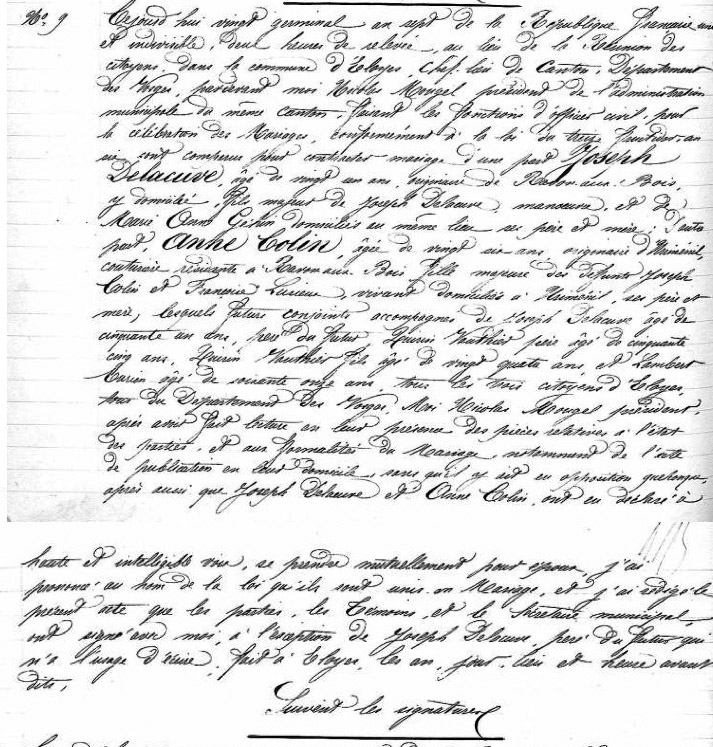 No. 9 Cejourd'hui vingt germinal an sept de la République française une
et indivisible, deux heures de relevée, au lieu de la Réunion des
citoyens, dans la commune d'Eloyes Chef-lieu de Canton, Département
des Vosges, pardevant moi Nicolas Mougel président de l'administration
municipale du même canton, faisant les fonctions d'officier civil, pour
la célébration des Mariages, conformément à la loi du treize fructidor an
six sont comparus pour contracter mariage d'une part Joseph
Delacuve, âgé de vingt un ans, originaire de Raon-aux-Bois,
y domicilié, fils majeur de Joseph Delacuve, manoeuvre, et de
Marie Anne domiciliés au même lieu ses père et mère ; d'autre
part, Anne Colin, âgée de vingt six ans, originaire d'Uriménil,
couturière résidante à Raon-aux-Bois fille majeure des défunts Joseph
Colin et Françoise, vivant domiciliés à Uriménil, ses père et
mère, lesquels futurs conjoints accompagnés de Joseph Delacuve âgé de
cinquante un ans, père du futur Quirin Vauthier père âgé de cinquante
cinq ans, Quirin Vauthier fils âgé de vingt quatre ans, et Lambert
âgé de soixante onze ans, tous les trois citoyens d'Eloyes,
tous du Département des Vosges, Moi Nicolas Mougel président,
après avoir fait lecture en leur présence des pièces relatives à l'état
des parties, et aux formalités du Mariage, notamment de l'acte
de publication en leur domicile, sans qu'il y ait eu opposition quelconque,
après aussi que Joseph Delacuve et Anne Colin, ont eu déclaré à
haute et intelligible voix, se prendre mutuellement pour époux, j'ai
prononcé au nom de la loi qu'ils sont unis en Mariage, et j'ai rédigé le
présent acte que les parties, les témoins et le Secrétaire municipal,
ont signé avec moi, à l'exception de Joseph Delacuve, père du futur qui
n'a l'usage d'écrire, fait à Eloyes, les an, jour, lieu et heure avant
dits,
Suivent les signatures